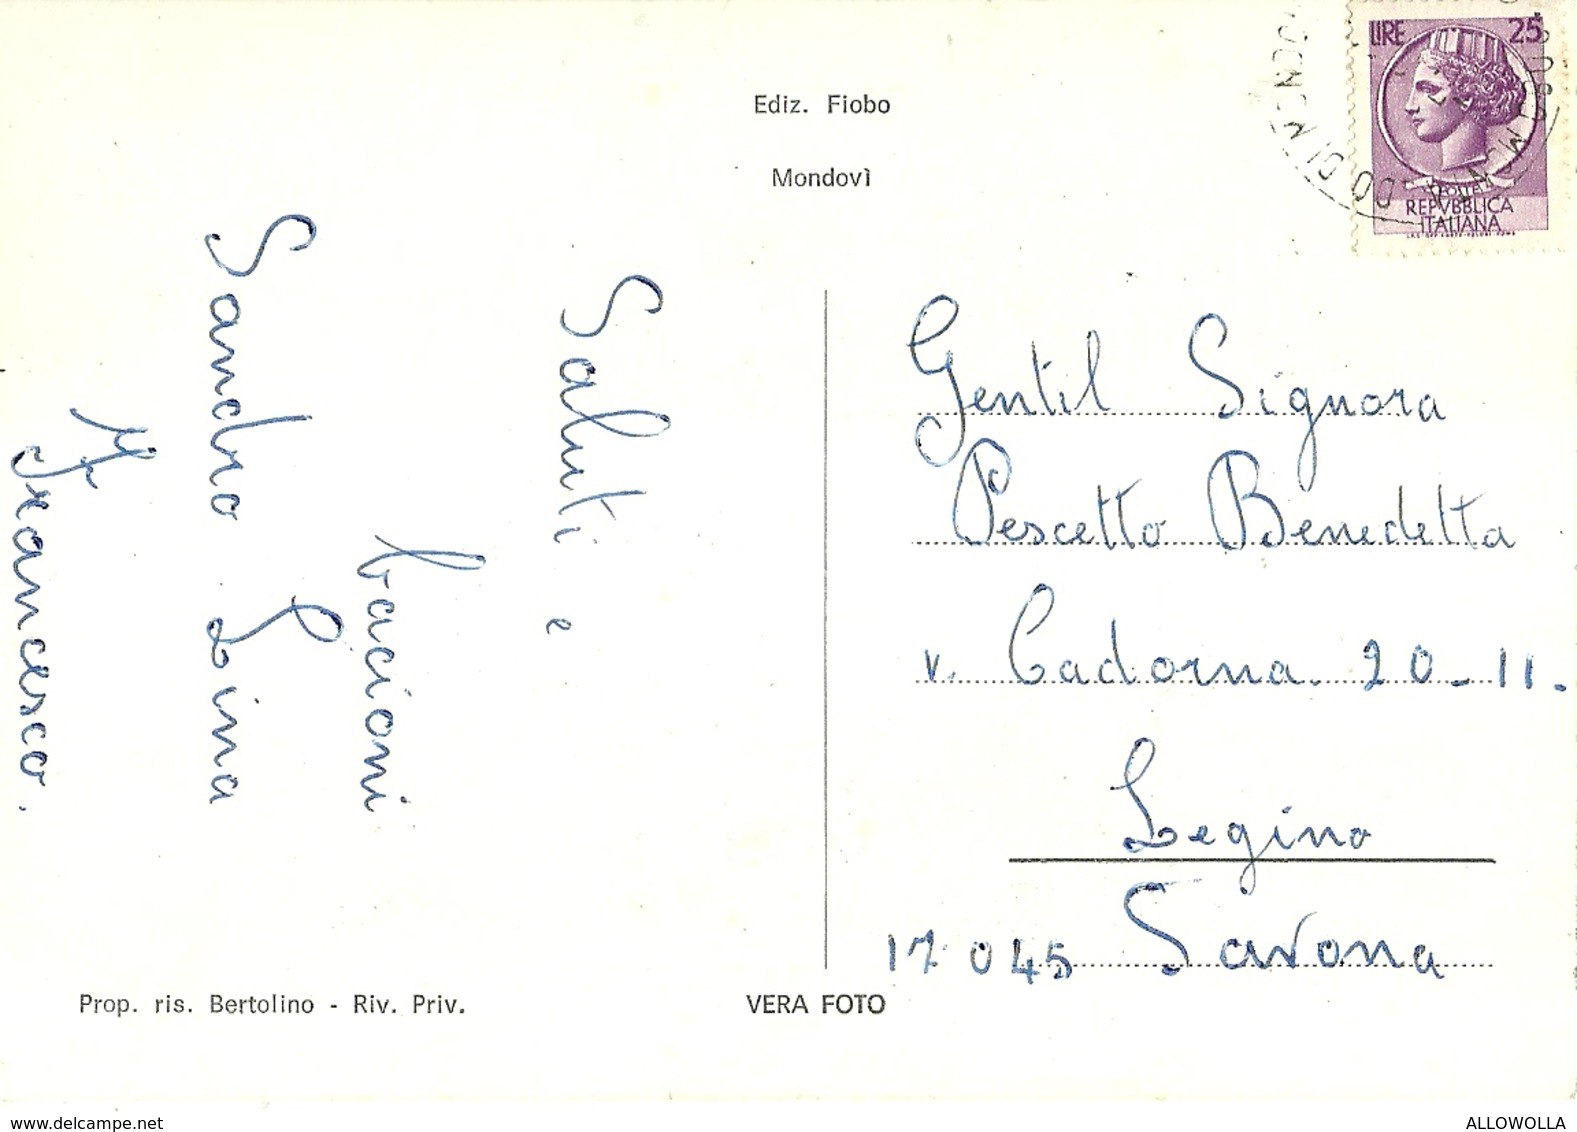 LIRE 25
REPVBBLICA
ITALIANA
Ediz. Fiobo
Mondovì
Saluti e
bacioni
Sandro Lina
Francesco.
Gentil Signora
Pescetto Benedetta
v. Cadorna. 20-11.
Legino
17045 Savona
Prop. ris. Bertolino - Riv. Priv.
VERA FOTO
www.delcampe.net
ALLOWOLLA